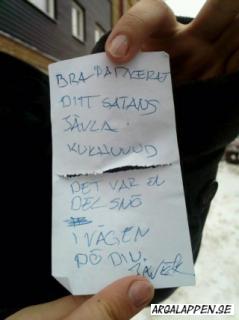 BRA PARKERAT
DITT SATANS
JÄVLA
KUKHUVUD
DET VAR EN
DEL SNÖ
I VÄGEN
PÅ DIN.
ARGALAPPEN.SE